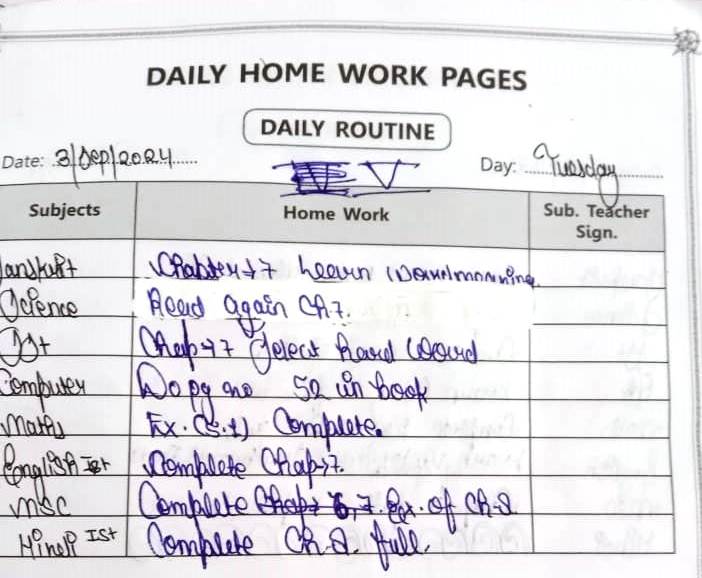 DAILY HOME WORK PAGES
DAILY ROUTINE
Date: 3/Sep/2024 Day: Tuesday
V
Subjects Home Work Sub. Teacher Sign.
Sanskrit Chapter→7 learn word meaning
Science Read again Ch 7.
SSt Chap→7 Select hard word
Computer Do pg no 52 in book
Maths Ex. (5.1) Complete.
English Ist Complete Chap→7.
MSC Complete 7. Ex. of Ch-2
Hindi Ist Complete Ch.2. full.